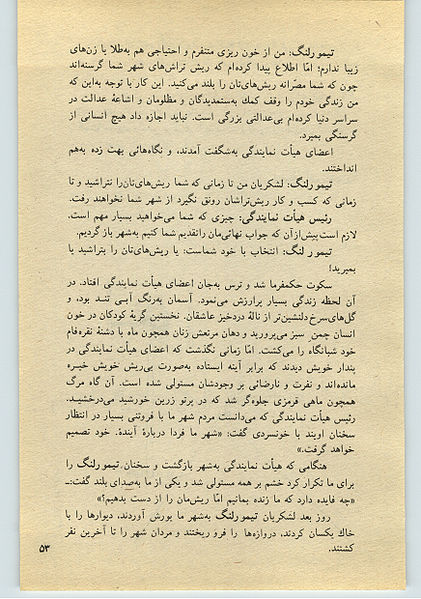 تیمورلنگ: من از خون ریزی متنفرم و احتیاجی هم به‌طلا یا زن‌های
زیبا ندارم؛ امّا اطلاع پیدا کرده‌ام که ریش تراش‌های شهر شما گرسنه‌اند
چون که شما مصّرانه ریش‌های‌تان را بلند می‌کنید. این کار با توجه به‌این که
من زندگی خودم را وقف کمك به‌ستمدیدگان و مظلومان و اشاعهٔ عدالت در
سراسر دنیا کرده‌ام بی‌عدالتی بزرگی است. نباید اجازه داد هیچ انسانی از
گرسنگی بمیرد.
اعضای هیأت نمایندگی به‌شگفت آمدند، و نگاه‌هائی بهت زده به‌هم
انداختند.
تیمورلنگ: لشکریان من تا زمانی که شما ریش‌های‌تان‌را نتراشید و تا
زمانی که کسب و کار ریش‌تراشان رونق نگیرد از شهر شما نخواهند رفت.
رئیس هیأت نمایندگی: چیزی که شما می‌خواهید بسیار مهم است.
لازم است‌پیش‌ازآن که جواب نهائی‌مان راتقدیم شما کنیم به‌شهر باز گردیم.
تیمور لنگ: انتخاب با خود شماست: یا ریش‌های‌تان را بتراشید یا
بمیرید!
سکوت حکمفرما شد و ترس به‌جان اعضای هیأت نمایندگی افتاد. در
آن لحظه زندگی بسیار پرارزش می‌نمود. آسمان به‌رنگ آبـی تنـد بود، و
گل‌های‌سرخ دلنشین‌تر از نالهٔ دردخیز عاشقان. نخستین گریهٔ کودکان در خون
انسان چمن سبز می‌پرورید و دهان مرتعش زنان همچون ماه با دشنهٔ نقره‌فام
خود شبانگاه را می‌کشت. امّا زمانی نگذشت که اعضای هیأت نمایندگی در
پندار خویش دیدند که برابر آینه ایستاده به‌صورت بی‌ریش خویش خیـره
مانده‌اند و نفرت و نارضائی بر وجودشان مستولی شده است. آن گاه مرگ
همچون ماهی قرمزی جلوه‌گر شد که در پرتو زرین خورشید می‌درخشیـد.
رئیس هیأت نمایندگی که می‌دانست مردم شهر ما با فروتنی بسیار در انتظار
سخنان اویند با خونسردی گفت: «شهر ما فردا دربارهٔ آیندهٔ. خود تصمیم
خواهد گرفت.»
هنگامی که هیأت نمایندگی به‌شهر بازگشت و سخنان تیمورلنگ را
برای ما تکرار کرد خشم بر همه مستولی شد و یکی از ما به‌صدای بلند گفت:ـ
«چه فایده دارد که ما زنده بمانیم امّا ریش‌مان را از دست بدهیم؟»
روز بعد لشکریان تیمورلنگ به‌شهر ما یورش آوردند، دیوارها را با
خاك یکسان کردند، دروازه‌ها را فرو ریختند و مردان شهر را تا آخرین نفر
کشتند.
۵۳